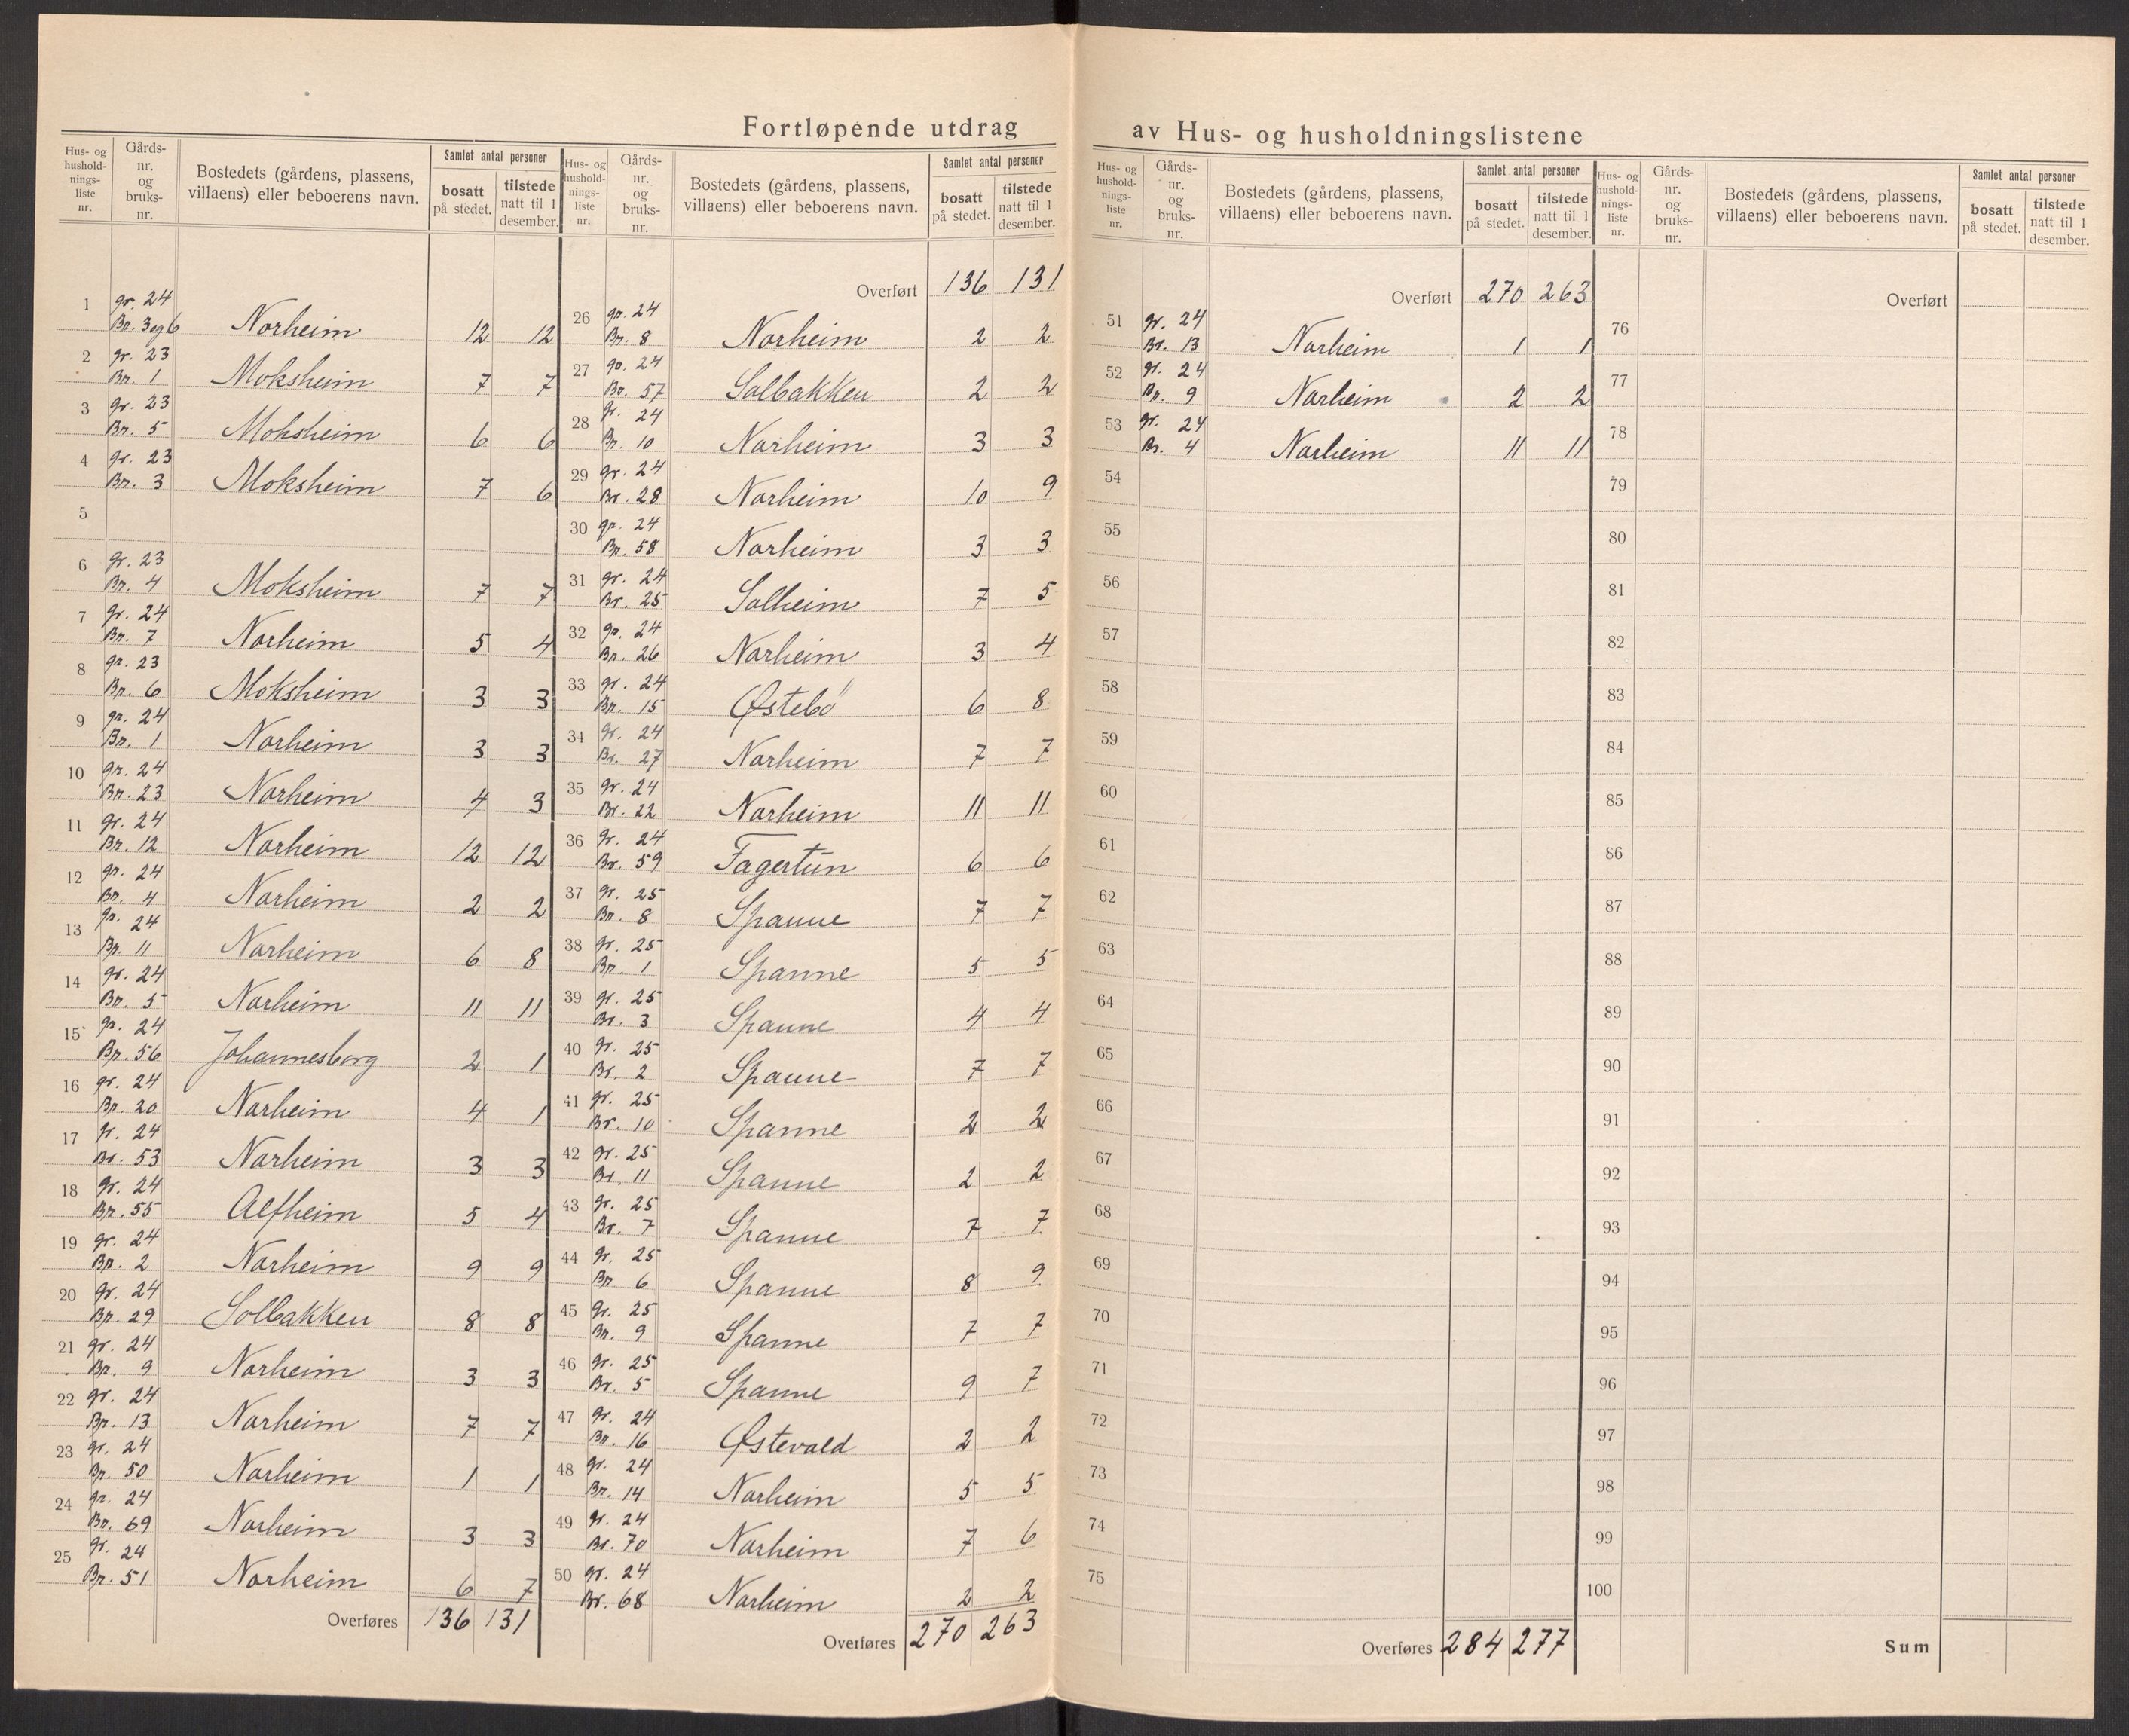 Fortløpende utdrag av Hus- og husholdningslistene
Hus- og hushold- nings- liste nr. | Gårds- nr. og bruks- nr. | Bostedets (gårdens, plassens, villaens) eller beboerens navn. | Samlet antal personer | bosatt på stedet. | tilstede natt til 1 desember.
1 gr. 24 Br. 3 og 6 Norheim 12 12
2 gr. 23 Br. 1 Moksheim 7 7
3 gr. 23 Br. 5 Moksheim 6 6
4 gr. 23 Br. 3 Moksheim 7 6
5
6 gr. 23 Br. 4 Moksheim 7 7
7 gr. 24 Br. 7 Norheim 5 4
8 gr. 23 Br. 6 Moksheim 3 3
9 gr. 24 Br. 1 Norheim 3 3
10 gr. 24 Br. 23 Norheim 4 3
11 gr. 24 Br. 12 Norheim 12 12
12 gr. 24 Br. 4 Norheim 2 2
13 gr. 24 Br. 11 Norheim 6 8
14 gr. 24 Br. 5 Norheim 11 11
15 gr. 24 Br. 56 Johannesborg 2 1
16 gr. 24 Br. 20 Norheim 4 1
17 gr. 24 Br. 53 Norheim 3 3
18 gr. 24 Br. 55 Alfheim 5 4
19 gr. 24 Br. 2 Norheim 9 9
20 gr. 24 Br. 29 Solbakken 8 8
21 gr. 24 Br. 9 Norheim 3 3
22 gr. 24 Br. 13 Norheim 7 7
23 gr. 24 Br. 50 Norheim 1 1
24 gr. 24 Br. 69 Norheim 3 3
25 gr. 24 Br. 51 Norheim 6 7
Overføres 136 131
Hus- og hushold- nings- liste nr. | Gårds- nr. og bruks- nr. | Bostedets (gårdens, plassens, villaens) eller beboerens navn. | Samlet antal personer | bosatt på stedet. | tilstede natt til 1 desember.
Overført 136 131
26 gr. 24 Br. 8 Norheim 2 2
27 gr. 24 Br. 57 Solbakken 2 2
28 gr. 24 Br. 10 Norheim 3 3
29 gr. 24 Br. 28 Norheim 10 9
30 gr. 24 Br. 58 Norheim 3 3
31 gr. 24 Br. 25 Solheim 7 5
32 gr. 24 Br. 26 Norheim 3 4
33 gr. 24 Br. 15 Østebö 6 8
34 gr. 24 Br. 27 Norheim 7 7
35 gr. 24 Br. 22 Norheim 11 11
36 gr. 24 Br. 59 Fagertun 6 6
37 gr. 25 Br. 8 Spanne 7 7
38 gr. 25 Br. 1 Spanne 5 5
39 gr. 25 Br. 3 Spanne 4 4
40 gr. 25 Br. 2 Spanne 7 7
41 gr. 25 Br. 10 Spanne 2 2
42 gr. 25 Br. 11 Spanne 2 2
43 gr. 25 Br. 7 Spanne 7 7
44 gr. 25 Br. 6 Spanne 8 9
45 gr. 25 Br. 9 Spanne 7 7
46 gr. 25 Br. 5 Spanne 9 7
47 gr. 24 Br. 16 Østevold 2 2
48 gr. 24 Br. 14 Norheim 5 5
49 gr. 24 Br. 70 Norheim 7 6
50 gr. 24 Br. 68 Norheim 2 2
Overføres 270 263
Hus- og hushold- nings- liste nr. | Gårds- nr. og bruks- nr. | Bostedets (gårdens, plassens, villaens) eller beboerens navn. | Samlet antal personer | bosatt på stedet. | tilstede natt til 1 desember.
Overført 270 263
51 gr. 24 Br. 13 Norheim 1 1
52 gr. 24 Br. 9 Norheim 2 2
53 gr. 24 Br. 4 Norheim 11 11
54
55
56
57
58
59
60
61
62
63
64
65
66
67
68
69
70
71
72
73
74
75
Overføres 284 277
Hus- og hushold- nings- liste nr. | Gårds- nr. og bruks- nr. | Bostedets (gårdens, plassens, villaens) eller beboerens navn. | Samlet antal personer | bosatt på stedet. | tilstede natt til 1 desember.
Overført
76
77
78
79
80
81
82
83
84
85
86
87
88
89
90
91
92
93
94
95
96
97
98
99
100
Sum